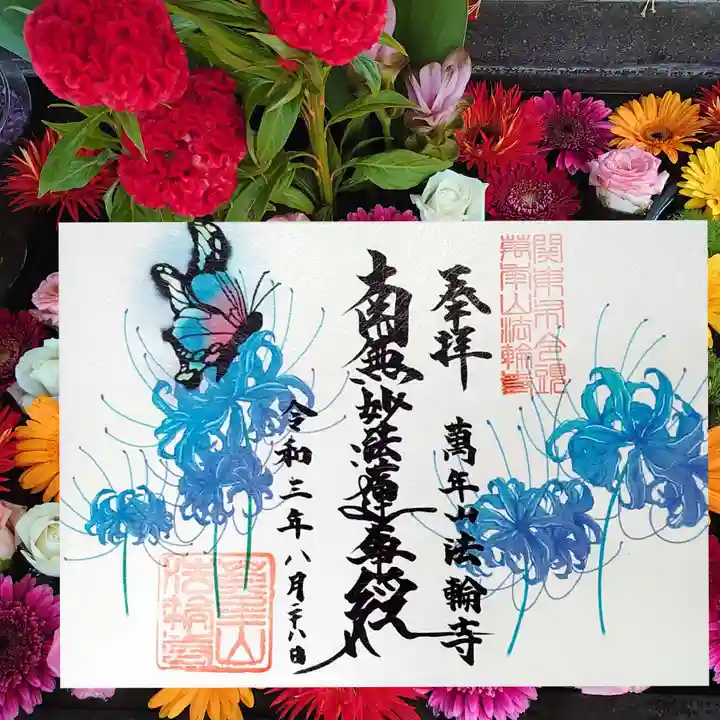 奉拝
萬年山法輪寺
南無妙法蓮華経
令和三年八月二十八日
萬年山
法輪寺
萬年山法輪寺